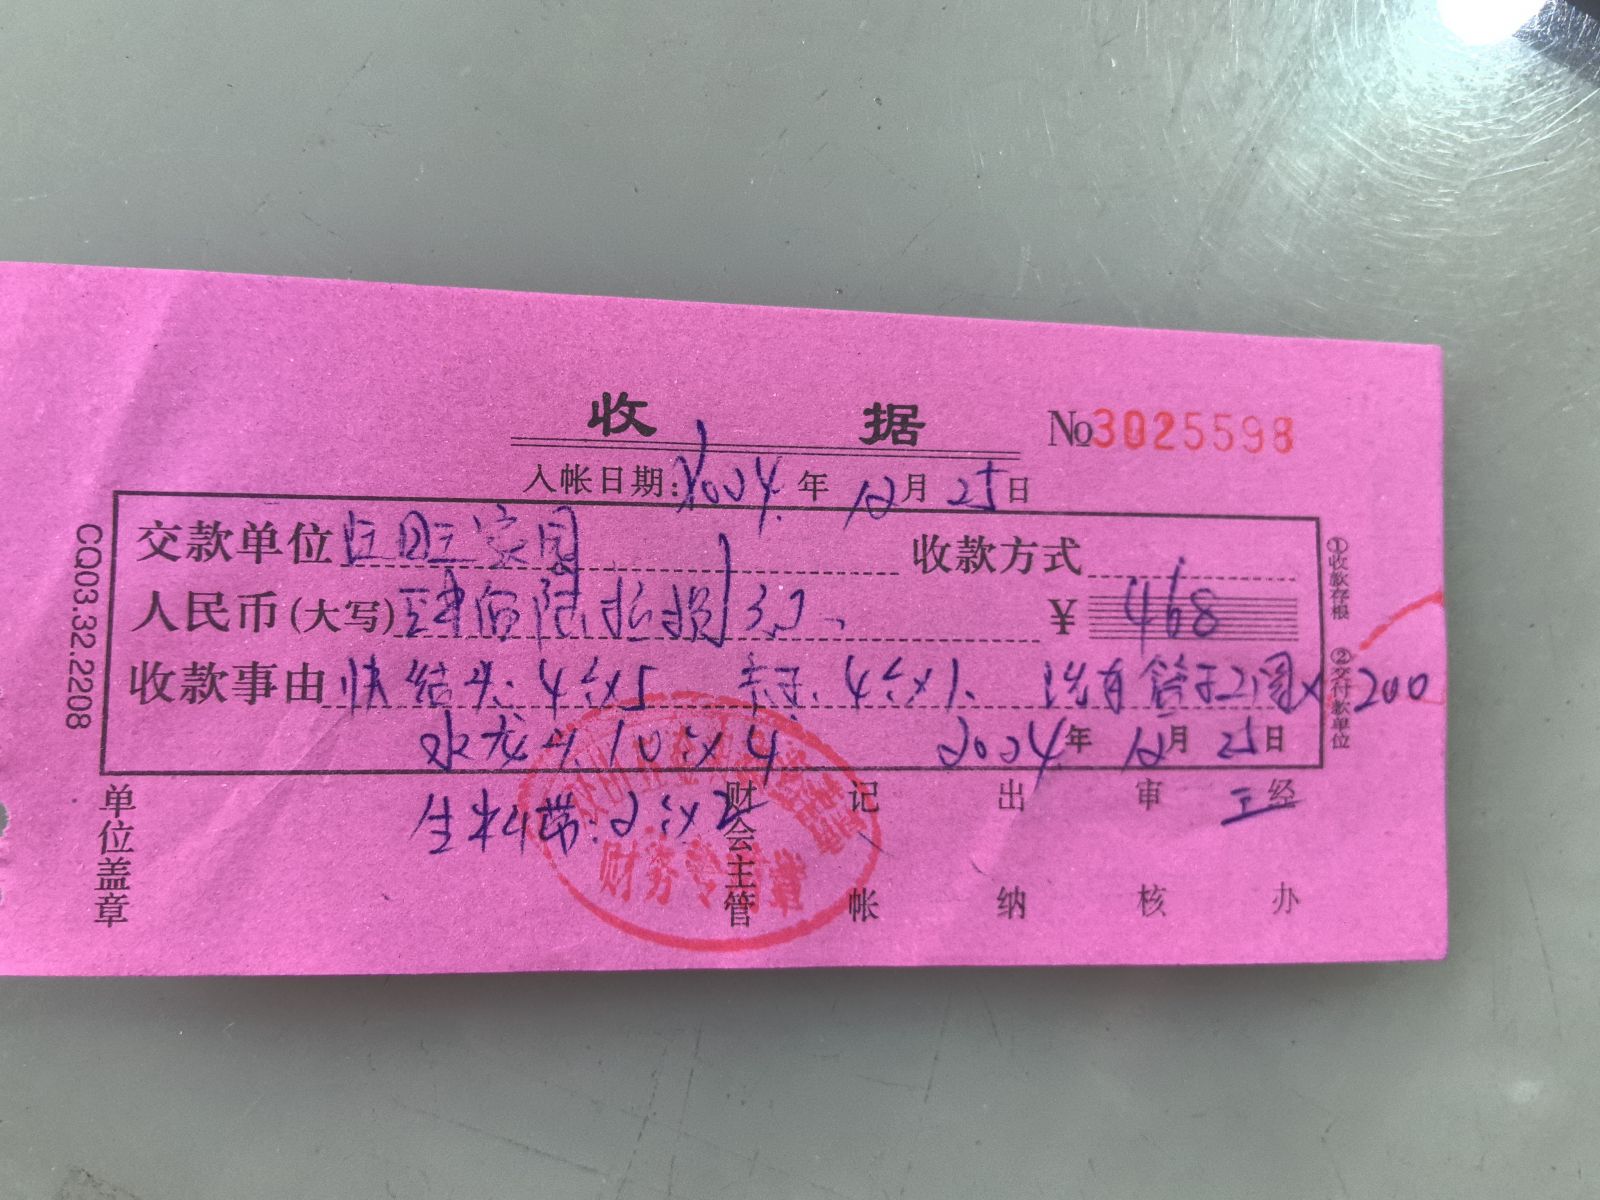 收 据 №3025598
入帐日期: 2024 年 12 月 25 日
交款单位 巨旺家园 收款方式
人民币(大写) 肆佰陆拾捌 ¥ 468
收款事由 快结头 4个×5 4个×1 管子2圈×200
水龙头 10个×4 2024 年 12 月 25 日
生料带 2个×2
单位盖章 财会主管 记帐 出纳 审核 经办
财务专用章
CQ03.32.2208
①收款存根 ②交付款单位